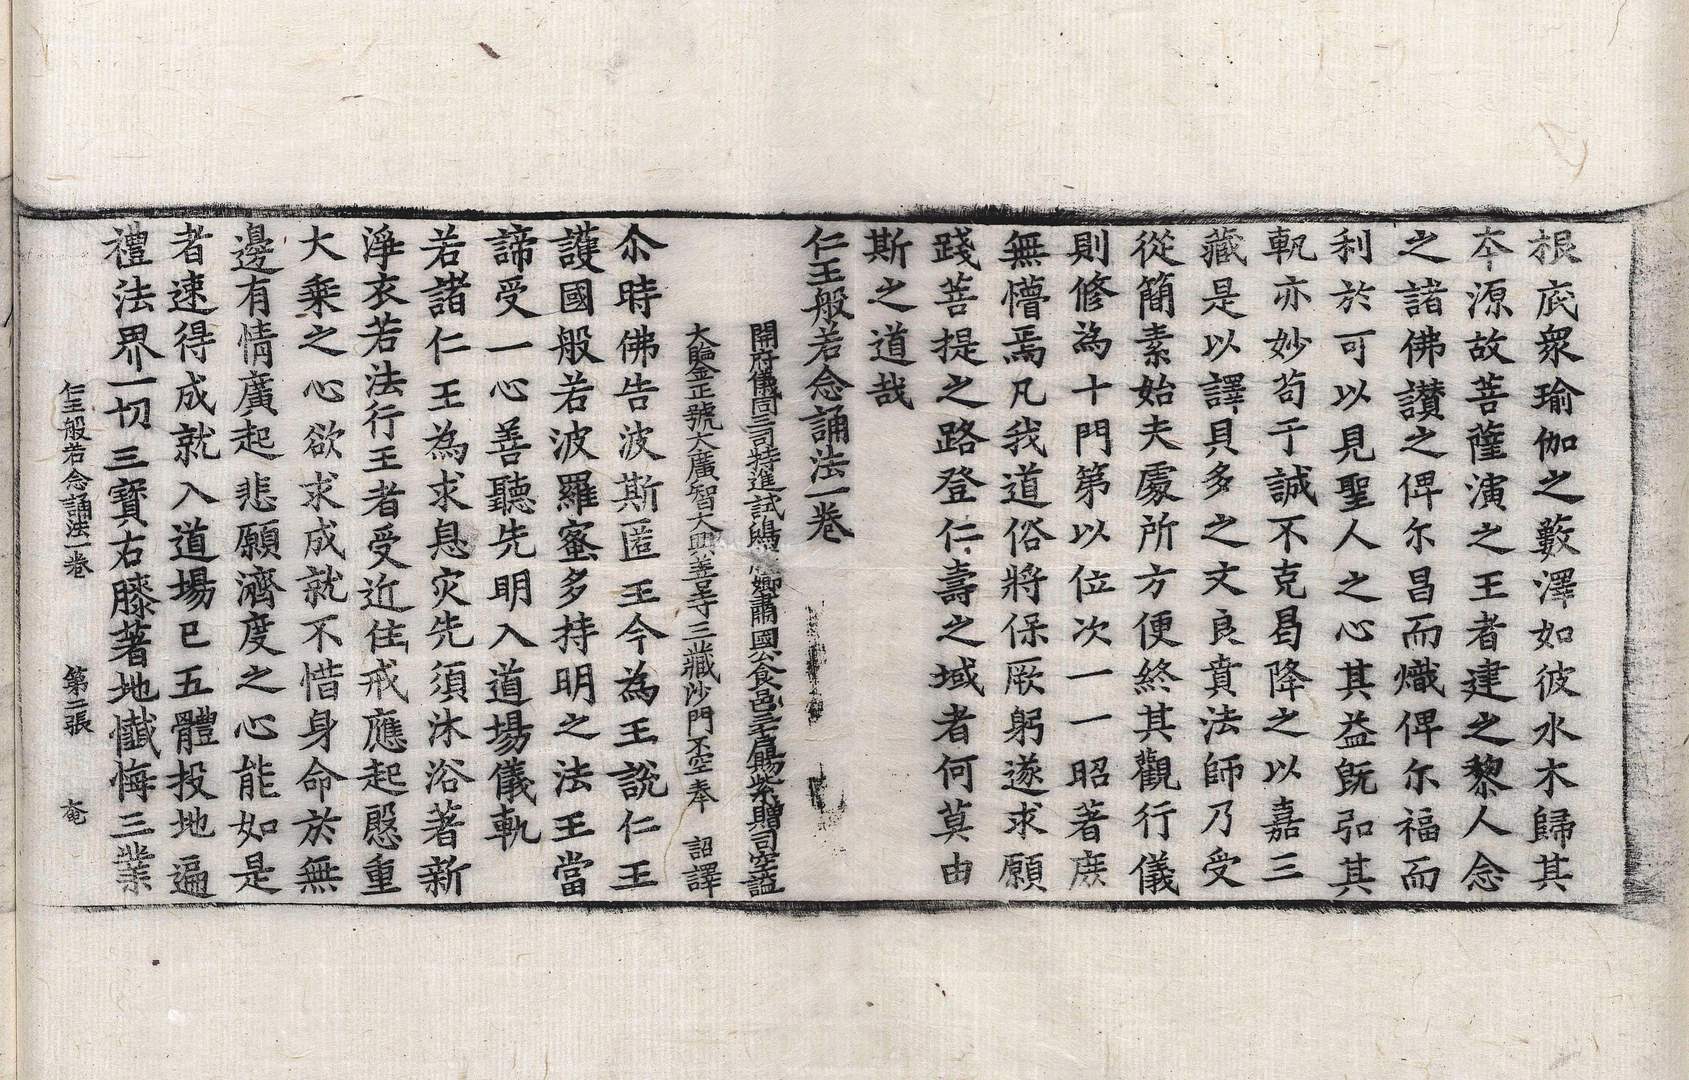 根底衆瑜伽之藪澤如彼水木歸其
夲源故菩薩演之王者建之黎人念
之諸佛讃之俾尓昌而熾俾尓福而
利於可以見聖人之心其益旣弘其
軌亦妙苟于誠不克曷降之以嘉三
藏是以譯貝多之文良賁法師乃受
從簡素始夫處所方便終其觀行儀
則修為十門第以位次一一昭著庶
無懵焉凡我道俗將保厥躬遂求願
踐菩提之路登仁壽之域者何莫由
斯之道哉
仁王般若念誦法一卷
開府儀同三司特進試鴻卿肅國公食邑三千户賜紫贈司空謚
大鑒正號大廣智大興善寺三藏沙門不空奉 詔譯
尒時佛告波斯匿王今為王說仁王
護國般若波羅蜜多持明之法王當
諦受一心善聽先明入道場儀軌
若諸仁王為求息灾先須沐浴著新
淨衣若法行王者受近住戒應起慇重
大乘之心欲求成就不惜身命於無
邊有情廣起悲願濟度之心能如是
者速得成就入道場已五體投地遍
禮法界一切三寶右膝著地懺悔三業
仁王般若念誦法一卷 第二張 奄